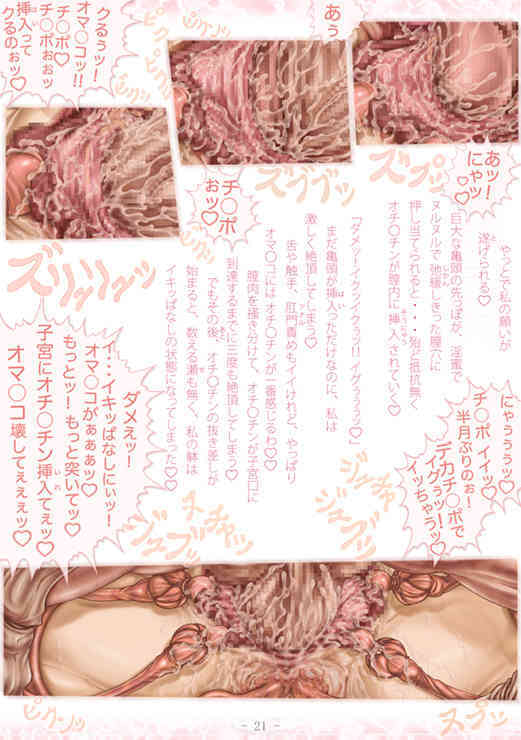 あぅ
あッ!
にゃッ♡
ズプッ
チ〇ポ
おッ♡
ズブブッ
クるぅッ!
オマ〇コッ!!
チ〇ポ♡
チ〇ポぉぉッ
挿入って
クるのぉッ♡
ピクンッ
ピクンッ
ズリッリッリッ
やっとで私の願いが
遂げられる♡
巨大な亀頭の先っぽが、淫蜜で
ヌルヌルで弛緩しきった膣穴に
押し当てられると・・・殆ど抵抗無く
オチ〇チンが膣内に挿入されていく♡
「ダメッ!イクッイクぅッ!!イグぅぅッ♡」
まだ亀頭が挿入っただけなのに、私は
激しく絶頂してしまう♡
舌や触手、肛門責めもイイけれど、やっぱり
オマ〇コにはオチ〇チンが一番感じるわ♡♡
膣肉を掻き分けて、オチ〇チンが子宮口に
到達するまでに三度も絶頂してしまう♡
でもその後、オチ〇チンの抜き差しが
始まると、数える瀬も無く、私の躰は
イキっぱなしの状態になってしまった♡
にゃぅぅぅッ♡
チ〇ポ イイッ♡
半月ぶりのぉ!
デカチ〇ポで
イグぅッ!
イッちゃうッ♡
ジッチャ
ジュブッ
ヌチャッ
ジュブッ
ダメぇッ!
イ・・イキッぱなしにぃッ!
オマ〇コがぁぁぁッ♡
もっとッ!もっと突いてッ♡
子宮にオチ〇チン挿入てぇッ♡
オマ〇コ壊してぇぇぇッ♡
ピクンッ
ヌプッ
- 21 -